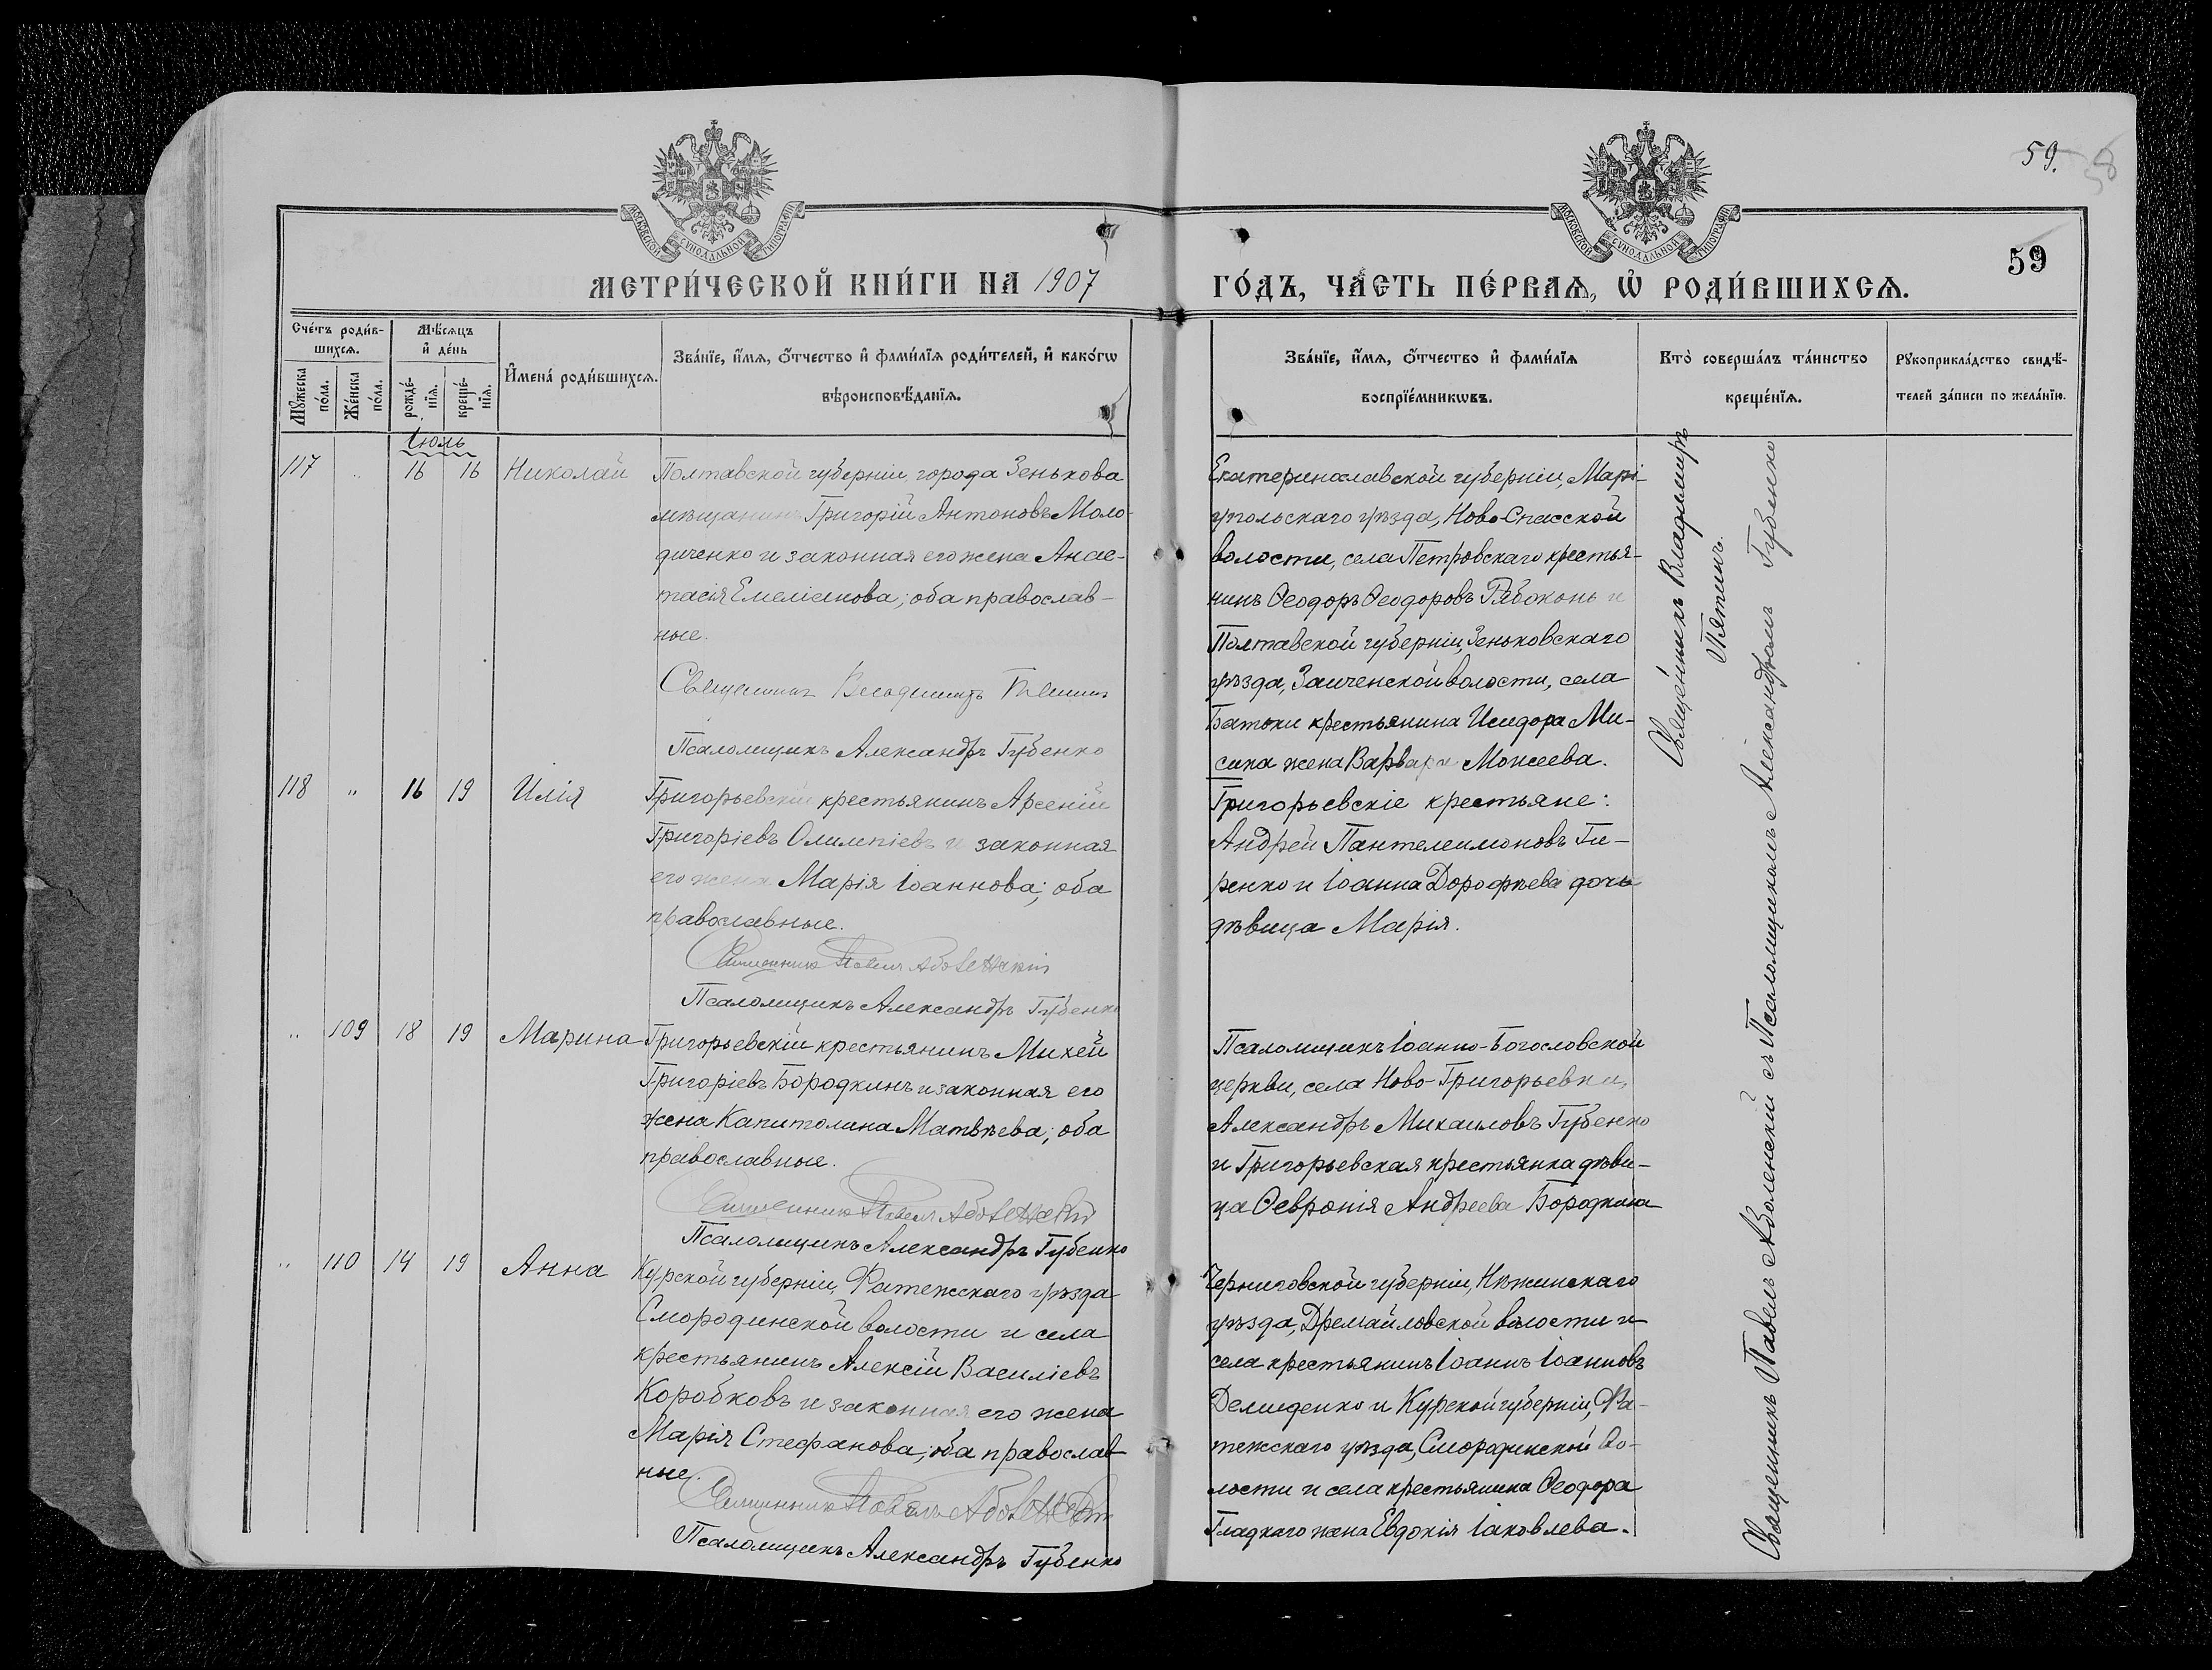 59. 58
МОСКОВСКОЙ СѴНОДАЛЬНОЙ ТИПОГРАФІИ
МОСКОВСКОЙ СѴНОДАЛЬНОЙ ТИПОГРАФІИ
59
МЕТРИ́ЧЕСКОЙ КНИ́ГИ НА 1907
ГО́ДЪ, ЧА́СТЬ ПЕ́РВАѦ, Ѽ РОДИ́ВШИХСѦ.
Сче́тъ роди́в-
шихсѧ.
Мѣ́сѧцъ
и҆ де́нь
Мꙋ́жеска
по́ла.
Же́нска
по́ла.
рожде́-
нїѧ.
креще́-
нїѧ.
И҆мена̀ роди́вшихсѧ.
Зва́нїе, и҆́мѧ, ѻ҆́тчество и҆ фами́лїѧ роди́телей, и҆ како́гѡ
вѣроисповѣ́данїѧ.
Зва́нїе, и҆́мѧ, ѻ҆́тчество и҆ фами́лїѧ
воспрїе́мникѡвъ.
Кто̀ соверша́лъ та́инство
креще́нїѧ.
Рꙋкоприкла́дство свидѣ́-
телей за́писи по жела́нїю.
Іюль
117 " 16 16 Николай
Полтавской губерніи, города Зенькова
мѣщанинъ Григорій Антоновъ Моло-
диченко и законная его жена Анас-
тасія Емеліанова; оба православ-
ные.
Священникъ Владимиръ Пятинъ
Псаломщикъ Александръ Губенко
Екатеринославской губерніи, Марі-
упольскаго уѣзда, Ново-Спасской
волости, села Петровскаго крестья-
нинъ Ѳеодоръ Ѳеодоровъ Рябоконь и
Полтавской губерніи, Зеньковскаго
уѣзда, Заиченской волости, села
Батьки крестьянина Исидора Ми-
сика жена Варвара Моисеева.
Священникъ Владимиръ
Пятинъ.
118 " 16 19 Илія
Григорьевскій крестьянинъ Арсеній
Григоріевъ Олимпіевъ и законная
его жена Марія Іоаннова; оба
православные.
Священникъ Павелъ Аболенскій
Псаломщикъ Александръ Губенко
Григорьевскіе крестьяне:
Андрей Пантелеимоновъ Ги-
ренко и Іоанна Дорофѣева дочь
дѣвица Марія.
" 109 18 19 Марина
Григорьевскій крестьянинъ Михей
Григоріевъ Бородкинъ и законная его
жена Капитолина Матвѣева; оба
православные.
Священникъ Павелъ Аболенскій
Псаломщикъ Александръ Губенко
Псаломщикъ Іоанно-Богословской
церкви, села Ново-Григорьевки,
Александръ Михаиловъ Губенко
и Григорьевская крестьянка дѣви-
ца Ѳевронія Андреева Бородкина
" 110 14 19 Анна
Курской губерніи, Фатежскаго уѣзда
Смородинской волости и села
крестьянинъ Алексій Василіевъ
Коробковъ и законная его жена
Марія Стефанова; оба православ-
ные.
Священникъ Павелъ Аболенскій
Псаломщикъ Александръ Губенко
Черниговской губерніи, Нѣжинскаго
уѣзда, Дремайловской волости и
села крестьянинъ Іоаннъ Іоанновъ
Демиденко и Курской губерніи, Фа-
тежскаго уѣзда, Смородинской во-
лости и села крестьянина Ѳеодора
Гладкаго жена Евдокія Іаковлева.
Священникъ Павелъ Аболенскій съ Псаломщикомъ Александромъ Губенко